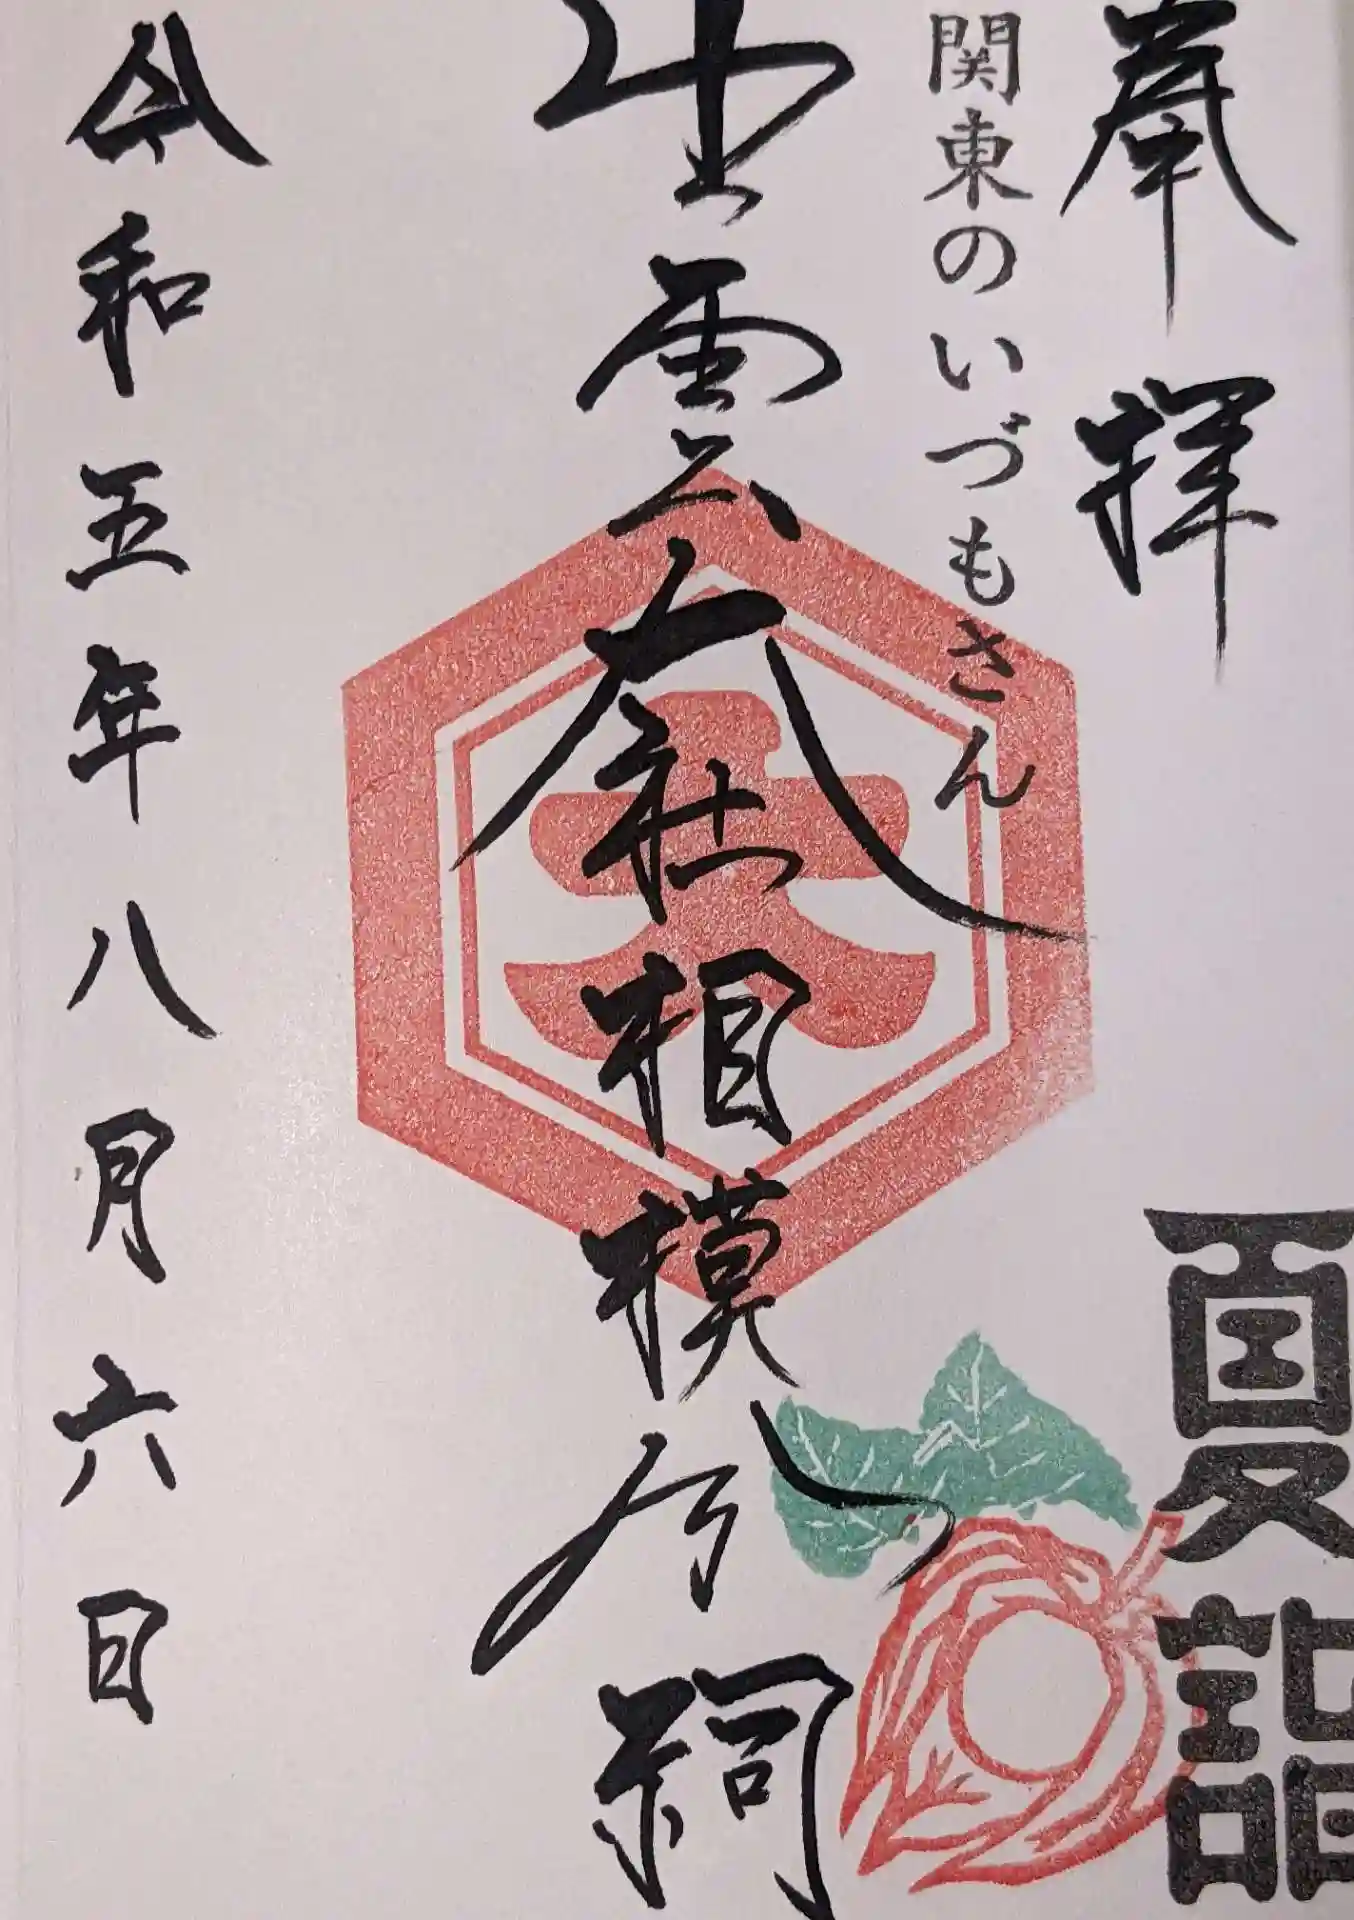 奉拝
関東のいづもさん
出雲大社相模分祠
令和五年八月六日
夏詣
大